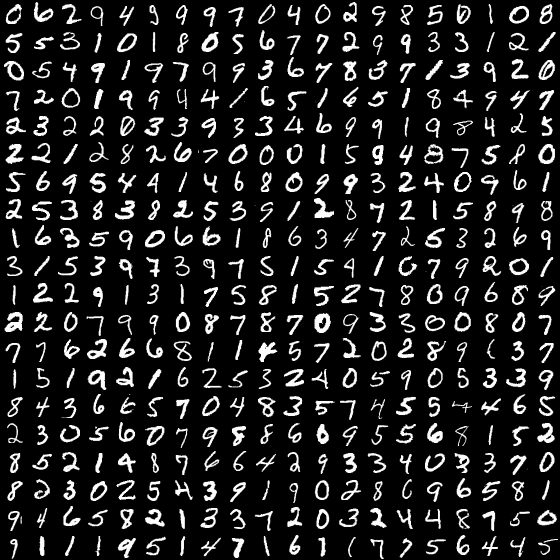 0 6 2 9 4 9 9 9 7 0 4 0 2 9 8 5 0 1 0 8
5 5 3 1 0 1 8 0 5 6 7 7 2 9 9 3 3 1 2 1
0 5 4 9 1 9 7 9 9 3 6 7 8 3 7 1 3 9 2 0
7 2 0 1 9 9 4 4 1 6 5 1 6 5 1 8 4 9 4 7
2 3 2 2 0 3 3 9 3 3 4 6 9 9 1 9 8 4 2 5
2 2 1 2 8 2 6 7 0 0 0 1 5 9 4 8 7 5 8 0
5 6 9 5 4 4 1 4 6 8 0 9 9 3 2 4 0 9 6 1
2 5 3 8 3 8 2 5 3 9 1 2 8 7 2 1 5 8 9 8
1 6 3 5 9 0 6 6 1 8 6 3 4 7 2 5 3 2 6 9
3 1 5 3 9 7 3 9 7 5 1 5 4 1 0 7 9 2 0 1
1 2 2 9 1 3 1 7 5 8 1 5 2 7 8 0 9 6 8 9
2 2 0 7 9 9 0 8 7 8 7 0 9 3 3 0 0 8 0 7
7 7 6 2 6 6 8 1 1 4 5 7 2 0 2 8 9 6 3 7
1 5 1 9 2 1 6 2 5 3 2 4 0 5 9 0 5 3 3 9
8 4 3 6 6 5 7 0 4 8 3 5 7 4 5 5 4 4 6 5
2 3 0 5 6 0 7 9 8 8 6 0 9 5 5 6 8 1 5 2
8 5 2 1 4 8 7 6 6 4 2 9 3 3 4 0 3 3 7 0
8 2 3 0 2 5 4 3 9 1 9 0 2 8 6 9 6 5 8 1
9 4 6 5 8 2 1 3 3 7 2 0 3 2 4 4 8 7 5 0
9 1 1 1 9 5 1 4 7 1 6 1 1 7 7 5 6 4 4 5